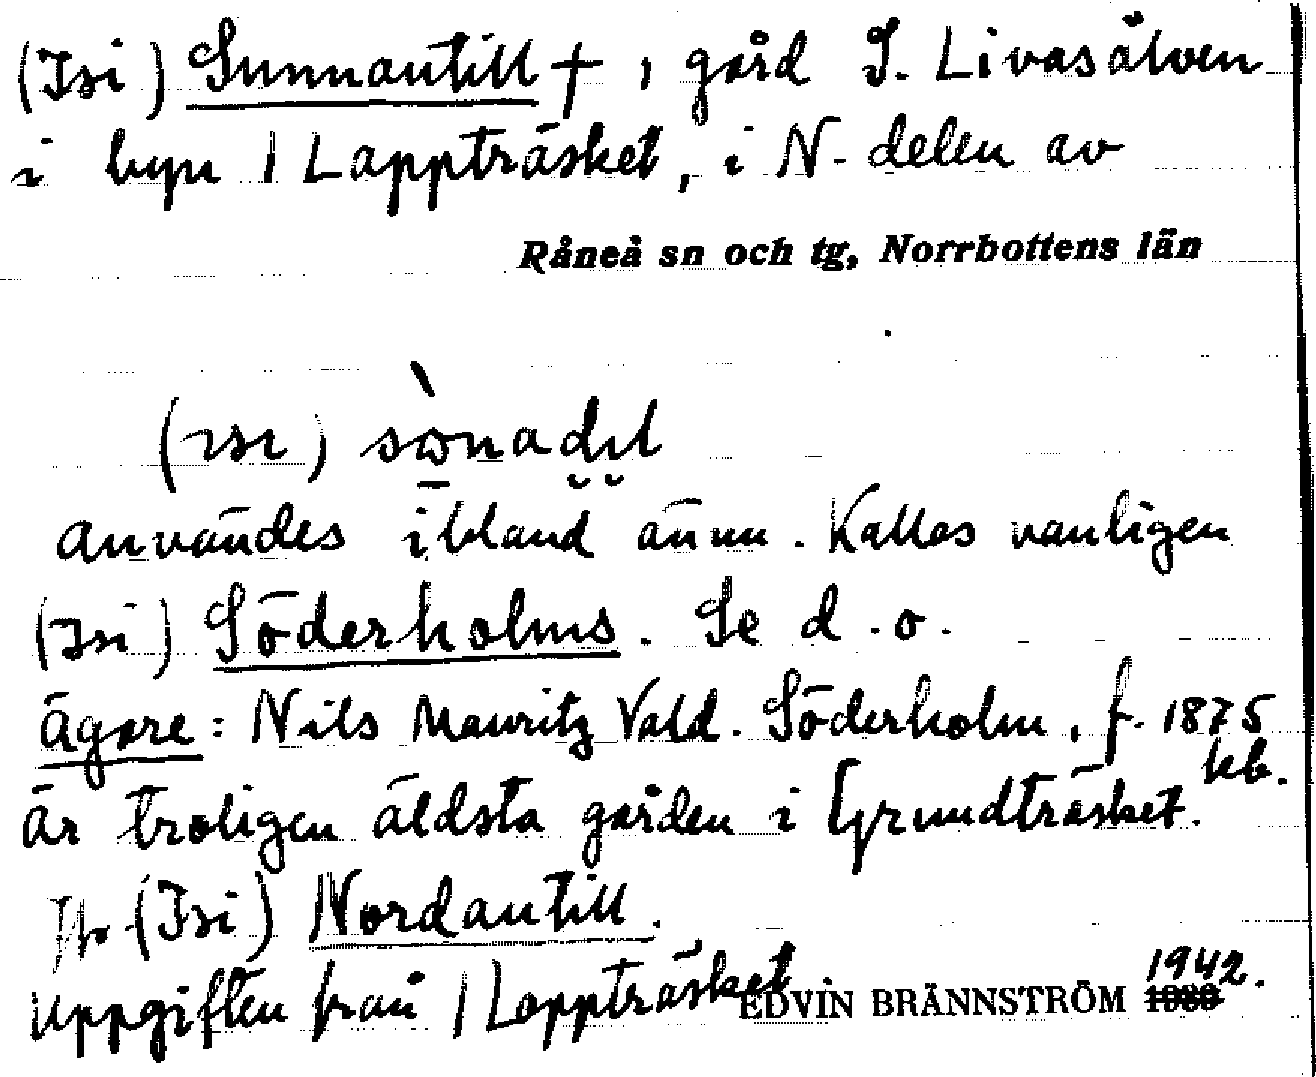 (Isi) Sunnantill †, gård S. Livasälven
i byn 1 Lappträsket, i N. delen av
Råneå sn och tg, Norrbottens län
användes ibland ännu. Kallas vanligen
(Isi) Söderholms. Se d.o.
Ägare: Nils Mauritz Vald. Söderholm, f. 1875
kb.
Är troligen äldsta gården i Grundträsket.
Jfr (Isi) Nordantill.
Uppgiften från 1 Lappträsket
1942.
EDVIN BRÄNNSTRÖM 1930